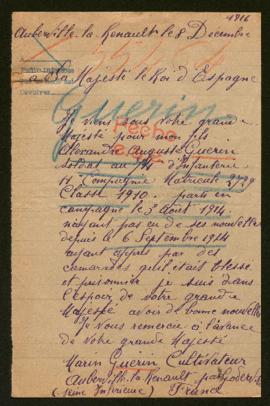 1916
Auberville-la-Renault le 8 Decembre
A
à Sa Majesté le Roi d'Espagne
Guerin
Je viens sous votre grande
Majesté pour mon fils
Alexandre Auguste Guerin
Soldat au d'Infanterie
11 Compagnie Matricule
Classe 1910 partis en
campagne le 3 Aout 1914
nayant pas eu de ses nouvelles
depuis le 6 Septembre 1914
ayant apris par des
camarades qu'il était blesse
et prisonnier je suis dans
l'espoir de votre grande
Majesté avoir de bonne nouvelle
Je vous remercie à l'avance
de votre grande Majesté
Marin Guerin Cultivateur
Auberville la Renault par Goderville
(Seine Inferieure) France